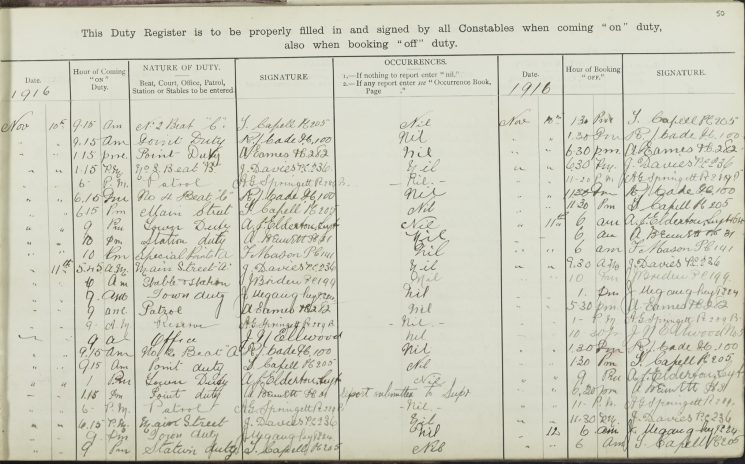 50
This Duty Register is to be properly filled in and signed by all Constables when coming "on" duty,
also when booking "off" duty.
Date. Hour of Coming "ON" Duty. NATURE OF DUTY. Beat, Court, Office, Patrol, Station or Stables to be entered SIGNATURE OCCURRENCES. 1.—If nothing to report enter "nil." 2.—If any report enter see "Occurrence Book, Page ." Date. Hour of Booking "OFF." SIGNATURE.
1916 1916
Nov 10th 9.15 am No 2 Beat "C" T. Capell PC 205 Nil Nov 10th 1.30 Pm T. Capell PC 205
" " 9.15 am Point Duty R J Cade PC 100 Nil " " 1.30 Pm R J Cade PC 100
" " 1.15 pm Point Duty A Eames PC 282 Nil " " 6.30 pm A Eames PC 282
" " 1.15 Pm No 3 Beat "B" J. Davies PC 236 Nil " " 6.30 Pm J. Davies PC 236
" " 6 P.M. Patrol A G Springett - Nil - " " 11-20 P.M. A G Springett
" " 6.15 Pm No 4 Beat "C" R J Cade PC 100 Nil " " 11.30 Pm R J Cade PC 100
" " 6.15 Pm Main Street T. Capell PC 205 Nil " " 11.30 Pm T. Capell PC 205
" " 9 Pm Town Duty A J Elderton Nil " 11th 6 am A J Elderton
" " 10 Pm Station duty A Hewett Nil " " 6 am A Hewett
" " 10 Pm Special Point A F Mason PC 141 Nil " " 6 am F Mason PC 141
" 11th 5.45 am Main Street "A" J Davies PC 236 Nil " " 9.30 am J. Davies PC 236
" " 6 am Stable & station Nil " " Pm
" " 9 am Town duty Nil " " 1 Pm
" " 9 am Patrol A Eames Nil " " 5.30 pm A Eames
" " 9 A.M. Reserve A G Springett - Nil - " " P.M. A G Springett
" " 9 am Office J J Ellwood Nil " " J J Ellwood
" " 9.15 am Beat "A" R J Cade PC 100 Nil " " 1.30 Pm R J Cade PC 100
" " 9.15 Am Point duty T. Capell PC 205 Nil " " 1.30 Pm T. Capell PC 205
" " 1 Pm Town Duty A J Elderton Nil " " 9 Pm A J Elderton
" " 1.15 Pm Point duty A Hewett Report submitted to Supt " " 6.20 pm A Hewett
" " 6 P.M. Patrol A G Springett - Nil - " " 11 P.M. A G Springett
" " 6.15 P.M. Main Street J Davies PC 236 Nil " " 11.30 Pm J. Davies PC 236
" " 9 Pm Town duty Nil " 12 6 am
" " 9 Pm Station duty T. Capell PC 205 Nil " " 6 am T. Capell PC 205